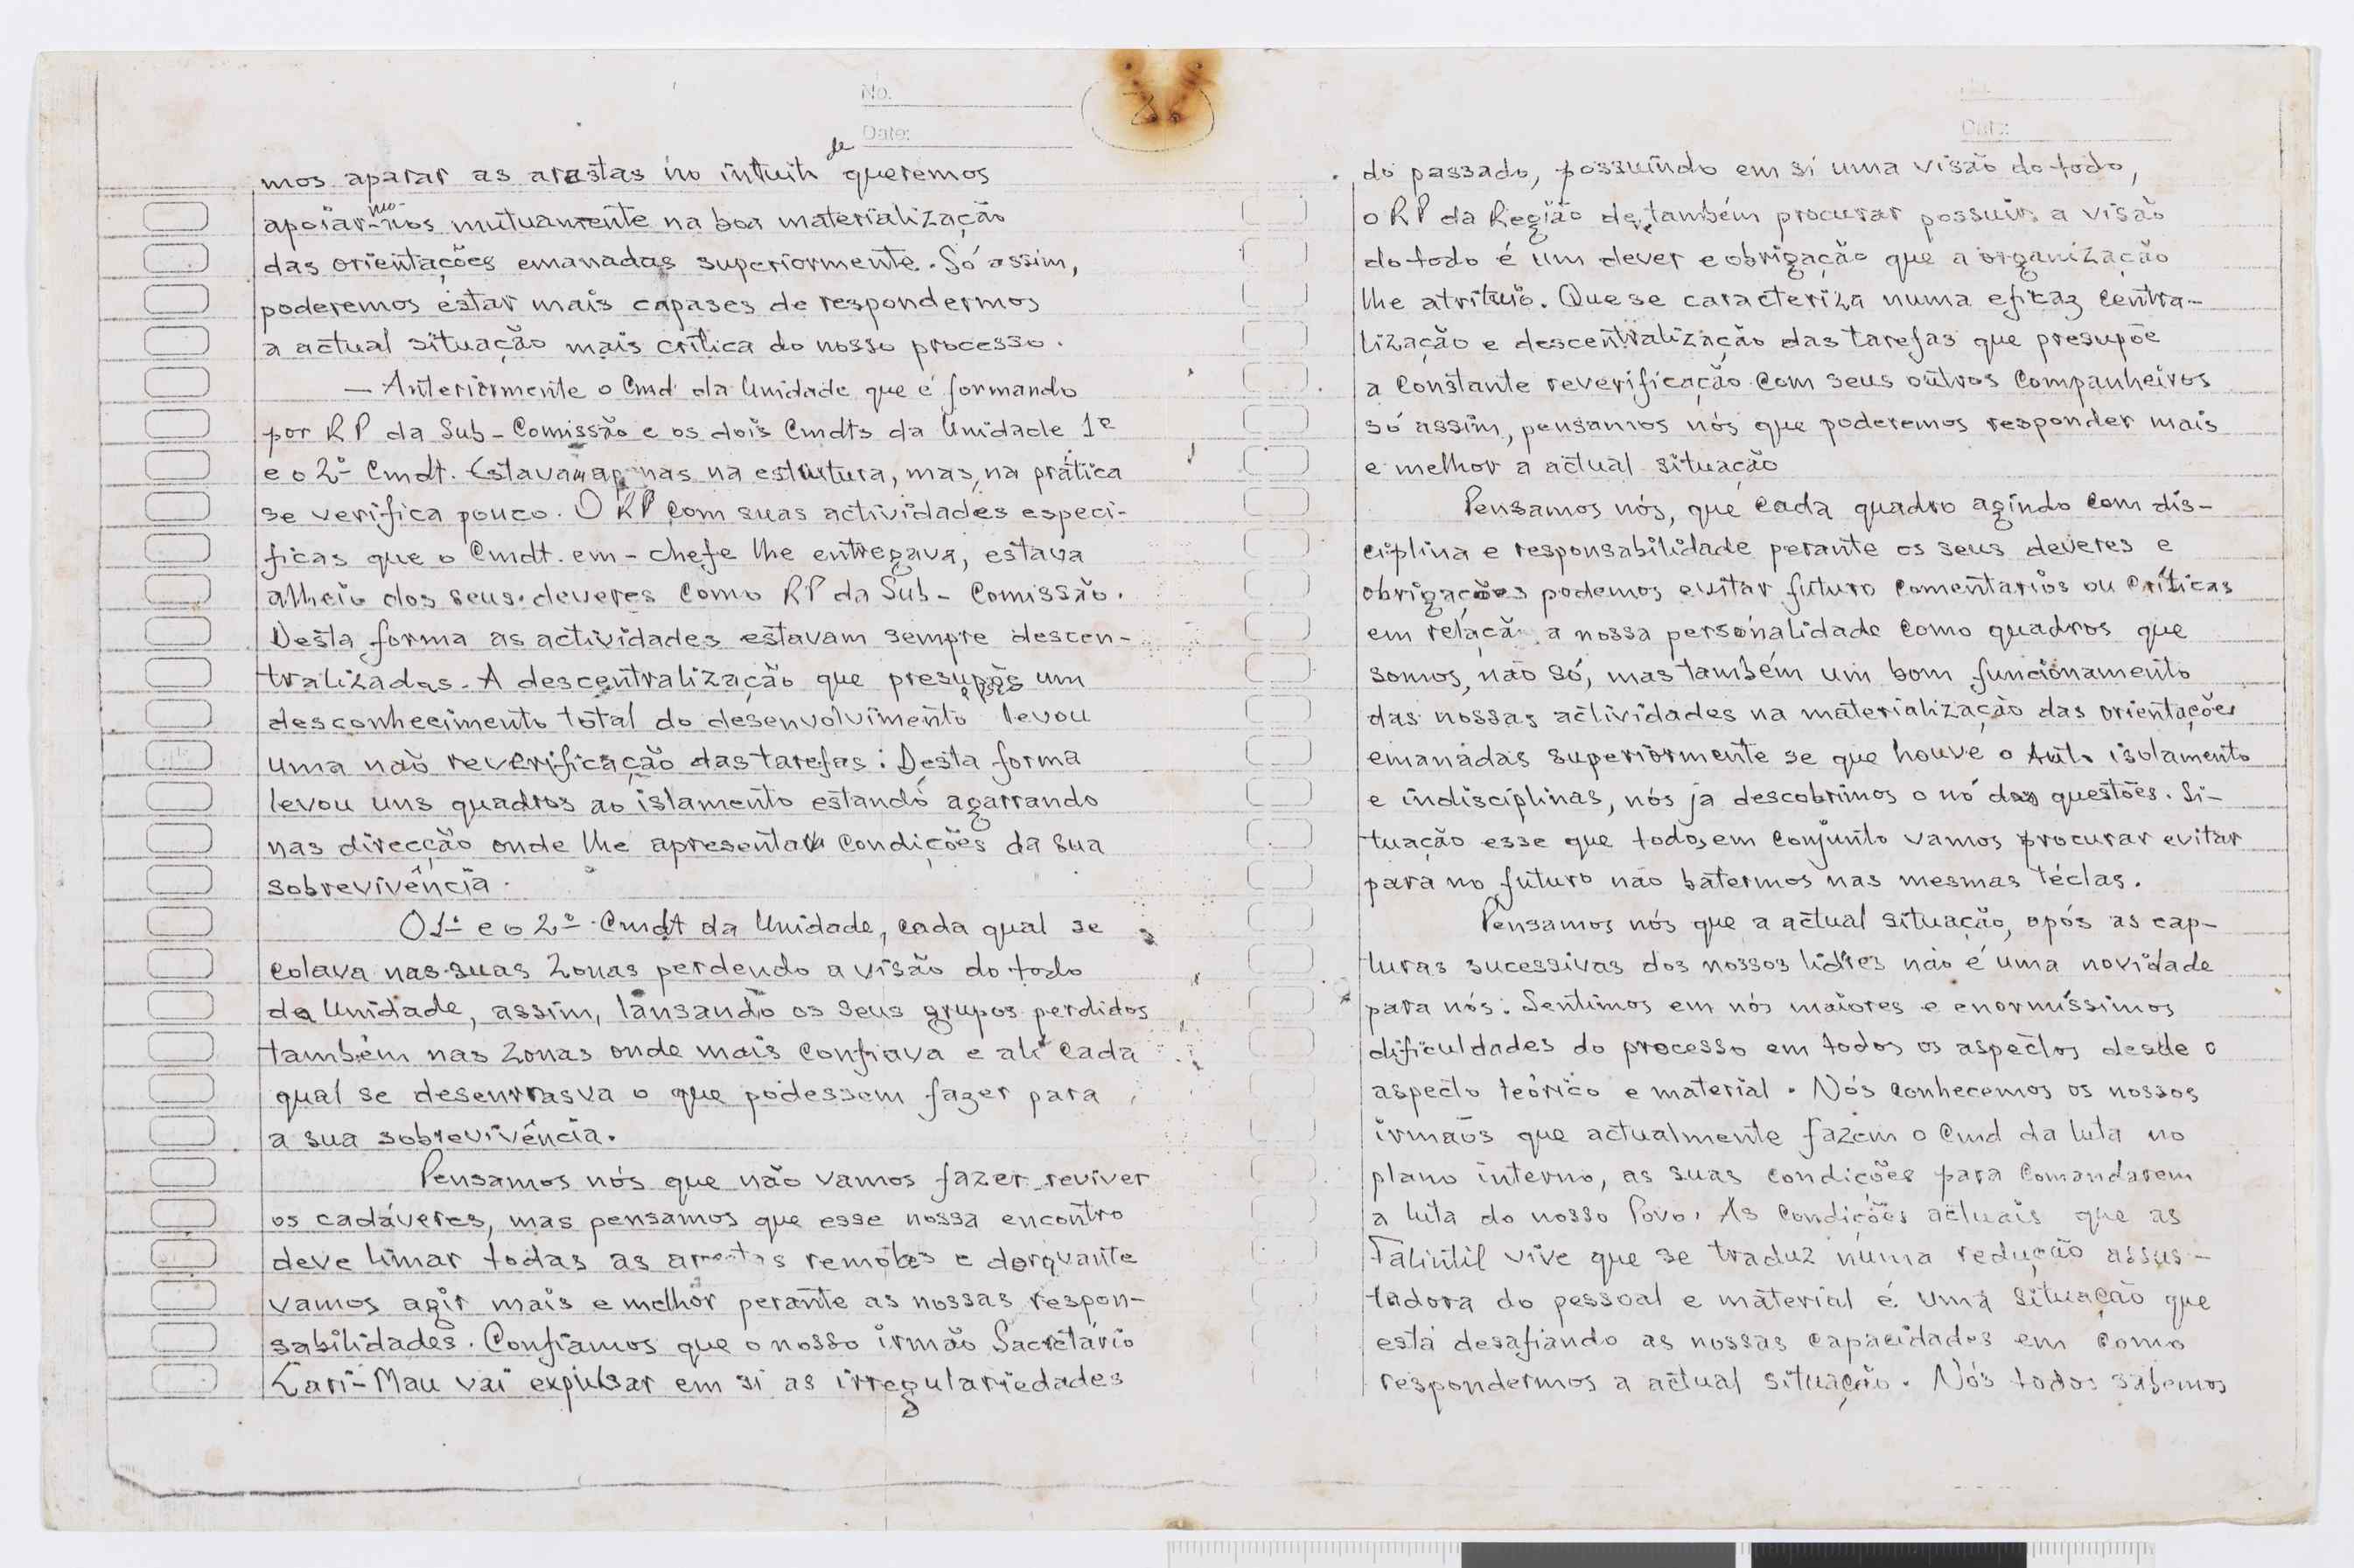 No.
Date:
mos aparar as arestas no intuito de queremos
apoiar-mo-nos mutuamente na boa materialização
das orientações emanadas superiormente. Só assim,
poderemos estar mais capases de respondermos
a actual situação mais crítica do nosso processo.
— Anteriormente o Cmd da Unidade que é formando
por RP da Sub-Comissão e os dois Cmdts da Unidade 1º
e o 2º Cmdt. Estavam apenas na estrutura, mas, na prática
se verifica pouco. O RP com suas actividades especi-
ficas que o Cmdt. em-chefe lhe entregava, estava
alheio dos seus deveres como RP da Sub-Comissão.
Desta forma as actividades estavam sempre descen-
tralizadas. A descentralização que presupõs um
desconhecimento total do desenvolvimento levou
uma não reverificação das tarefas: Desta forma
levou uns quadros ao islamento estando agarrando
nas direcção onde lhe apresentava condições da sua
sobrevivência.
O 1º e o 2º Cmdt da Unidade, cada qual se
colava nas suas Zonas perdendo a visão do todo
da Unidade, assim, lansando os seus grupos perdidos
também nas Zonas onde mais confiava e ali cada
qual se desenrrasva o que podessem fazer para
a sua sobrevivência.
Pensamos nós que não vamos fazer reviver
os cadáveres, mas pensamos que esse nossa encontro
deve limar todas as arestas remotas e dorovante
vamos agir mais e melhor perante as nossas respon-
sabilidades. Confiamos que o nosso irmão Sacretário
Lari-Mau vai expulsar em si as irregulariedades
Date:
do passado, possuindo em si uma visão do todo,
o RP da Região deve também procurar possuir a visão
do todo é um dever e obrigação que a organização
lhe atrituio. Que se caracteriza numa eficaz centra-
lização e descentralização das tarefas que presupõe
a constante reverificação com seus outros companheiros
só assim, pensamos nós que poderemos responder mais
e melhor a actual situação
Pensamos nós, que cada quadro agindo com dis-
ciplina e responsabilidade perante os seus deveres e
obrigações podemos evitar futuro comentarios ou críticas
em relação a nossa personalidade como quadros que
somos, não só, mas também um bom funcionamento
das nossas actividades na materialização das orientações
emanadas superiormente se que houve o Auto isolamento
e indisciplinas, nós ja descobrimos o nó das questões. Si-
tuação esse que todos em conjunto vamos procurar evitar
para no futuro não batermos nas mesmas téclas.
Pensamos nós que a actual situação, após as cap-
turas sucessivas dos nossos lidres não é uma novidade
para nós: Sentimos em nós maiores e enormíssimos
dificuldades do processo em todos os aspectos desde o
aspecto teórico e material. Nós conhecemos os nossos
irmaõs que actualmente fazem o Cmd da luta no
plano interno, as suas condições para comandarem
a luta do nosso Povo. As condições actuais que as
Falintil vive que se traduz numa redução assus-
tadora do pessoal e material é uma situação que
está desafiando as nossas capacidades em como
respondermos a actual situação. Nós todos sabemos